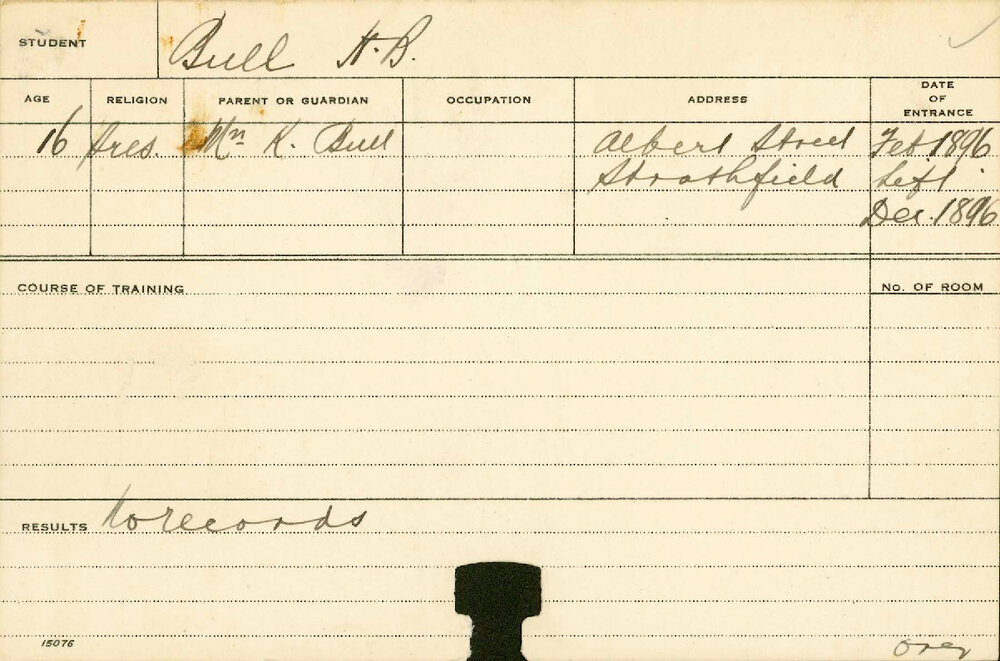 STUDENT Bull H.B.
AGE RELIGION PARENT OR GUARDIAN OCCUPATION ADDRESS DATE OF ENTRANCE
16 Pres. K. Bull Albert Street Feb. 1896
Strathfield Left
Dec. 1896
COURSE OF TRAINING No. OF ROOM
RESULTS No records
15076 Over